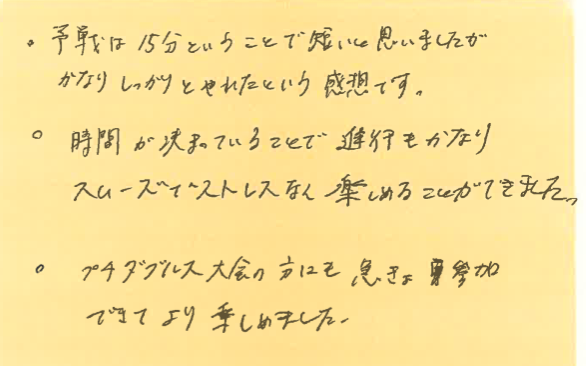 。予戦は15分ということで短いと思いましたが
かなりしっかりとやれたという感想です。
○ 時間が決まっていることで進行もかなり
スムーズでストレスなく楽しめることができました。
○ プチダブルス大会の方にも急きょ参加
できてより楽しめました。